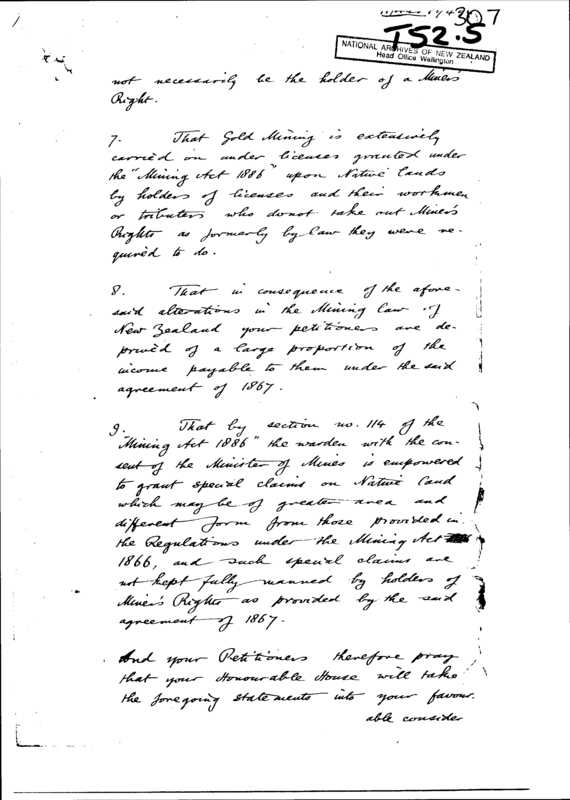 307
T52.5
NATIONAL ARCHIVES OF NEW ZEALAND
Head Office Wellington
not necessarily be the holder of a Miner's
Right.
7. That Gold Mining is extensively
carried on under licenses granted under
the "Mining Act 1886" upon Native lands
by holders of licenses and their workmen
or tributers who do not take out Miner's
Rights as formerly by law they were re-
quired to do.
8. That in consequence of the afore-
said alterations in the Mining law of
New Zealand your petitioners are de-
prived of a large proportion of the
income payable to them under the said
agreement of 1867.
9. That by section no. 114 of the
"Mining Act 1886" the warden with the con-
sent of the Minister of Mines is empowered
to grant special claims on Native land
which may be of greater area and
different form from those provided in
the Regulations under the Mining Act
1866, and such special claims are
not kept fully manned by holders of
Miner's Rights as provided by the said
agreement of 1867.
And your Petitioners therefore pray
that your Honourable House will take
the foregoing statements into your favour.
able consider